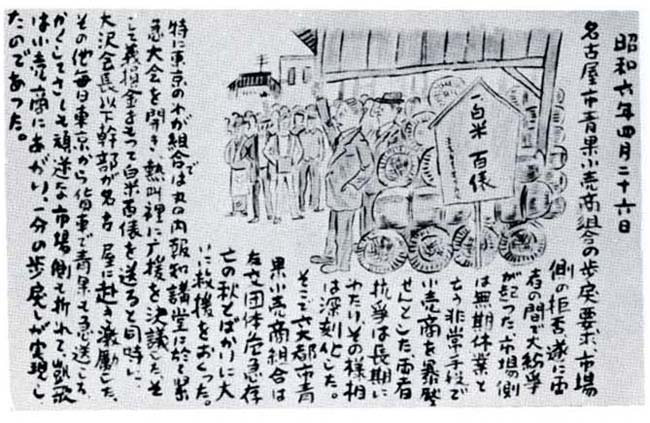 昭和六年四月二十六日
名古屋市青果小売商組合の歩戻要求、市場
側の拒否、遂に両
者の間で大紛争
が起った、市場側
は無期休業と
いう非常手段で
小売商を暴圧
せんとした、両者
抗争は長期に
わたりその様相
は深刻化した。
そこで六大都市青
果小売商組合は
友交団体危急存
亡の秋とばかりに大
いに救援をおくった。
特に東京のわが組合では丸の内報知講堂に於て緊
急大会を開き、熱叫裡に応援を決議した、そ
して義捐金をもって白米百俵を送ると同時に、
大沢会長以下幹部が名古屋に赴き激励した、
その他毎日東京から貨車で青果を急送した、
かくしてさしも頑迷な市場側も折れて凱歌
は小売商にあがり、一分の歩戻しが実現し
たのであった。
白米百俵